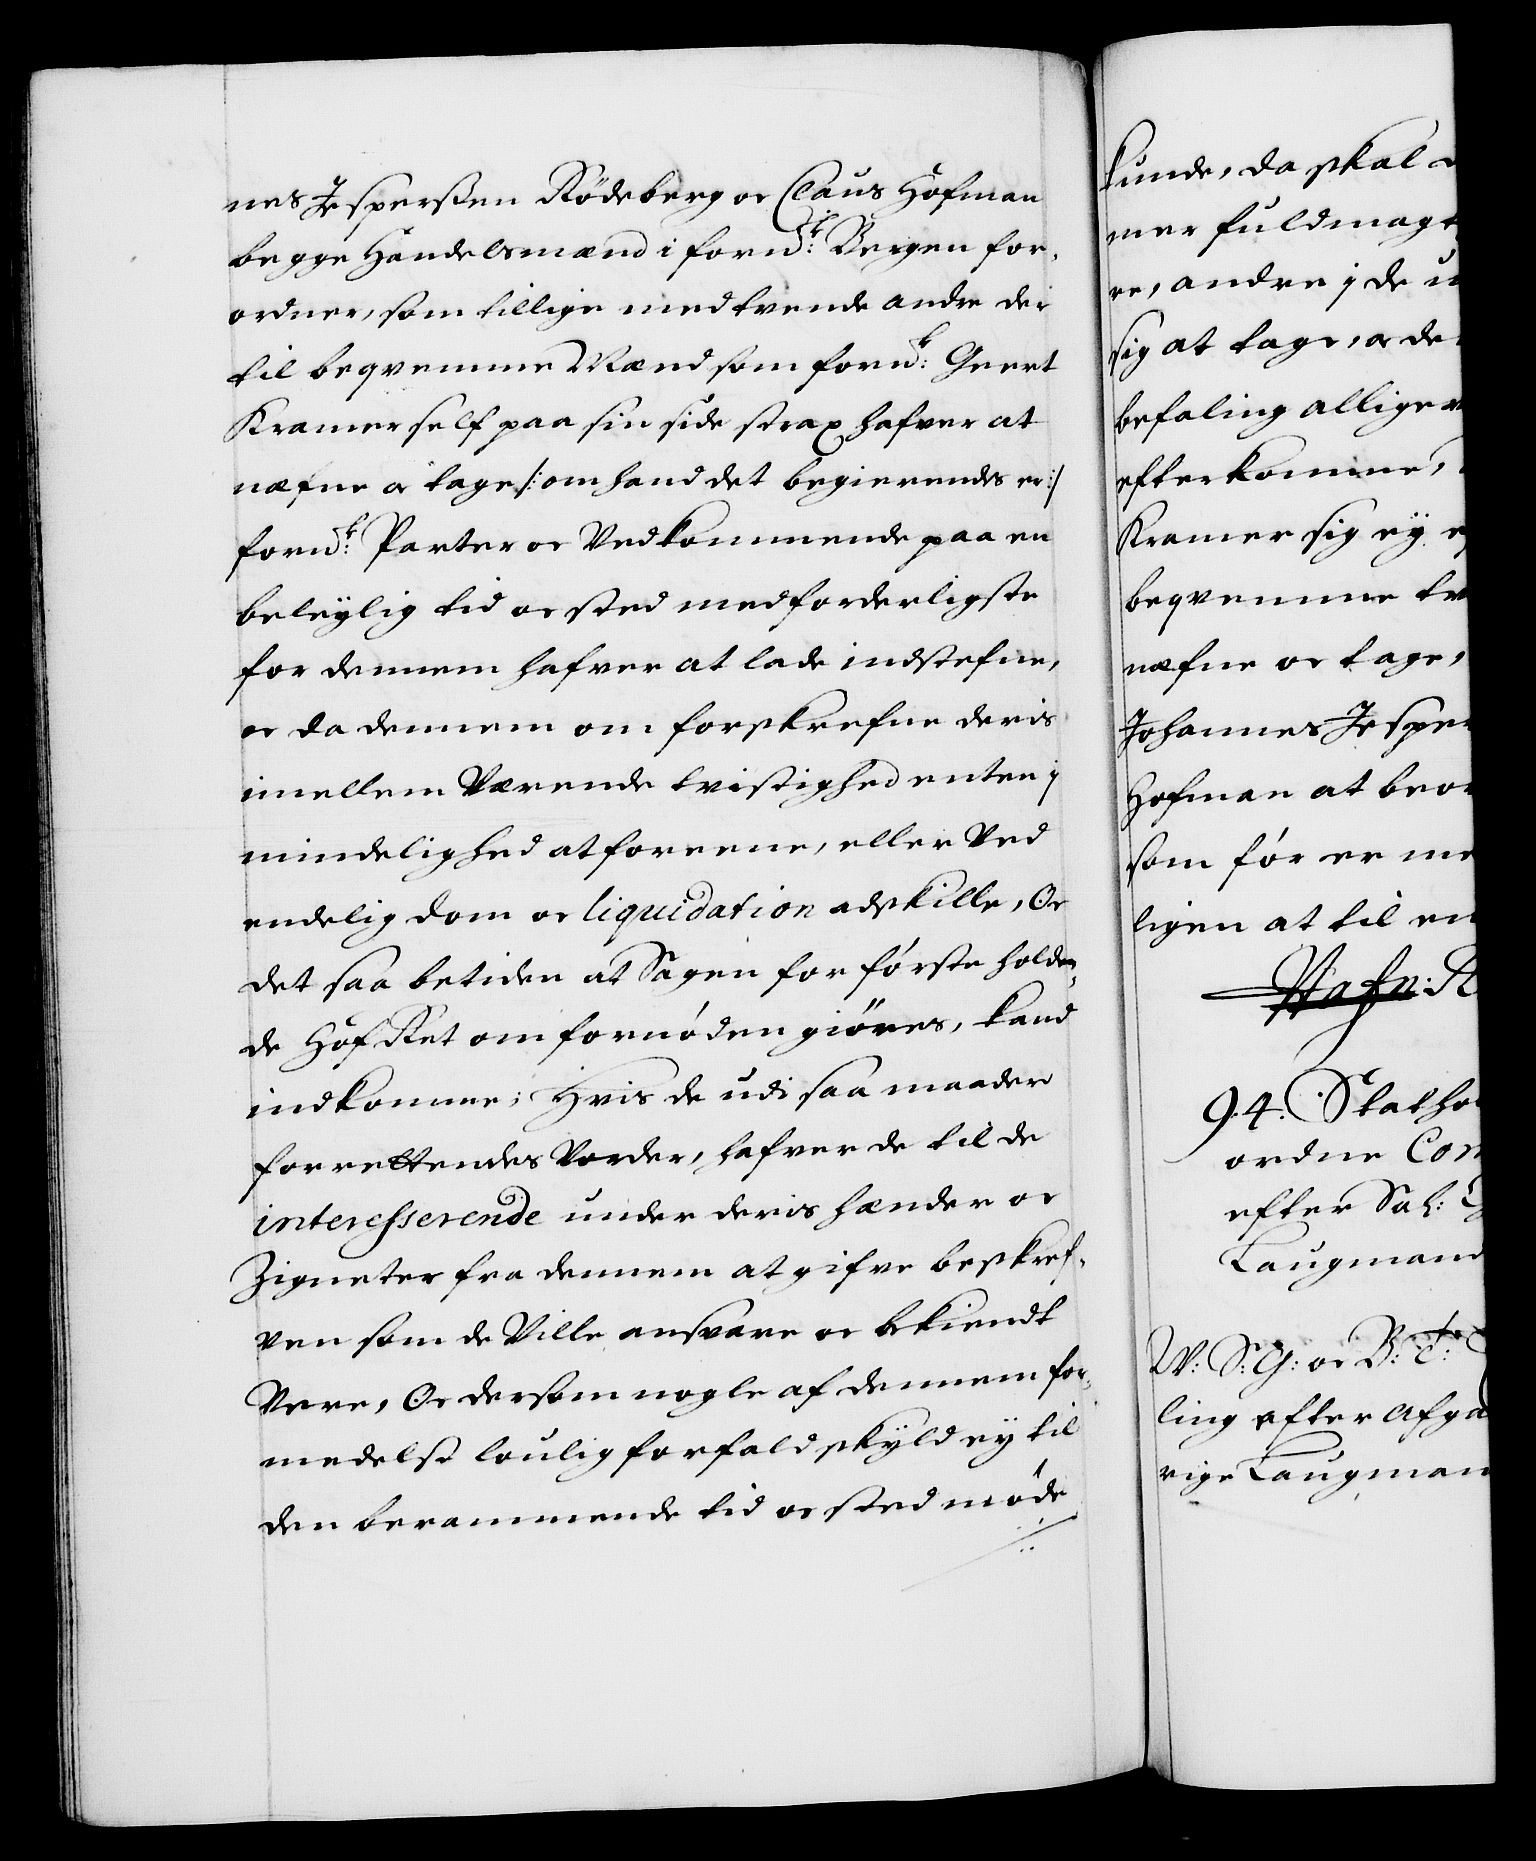 nes Jesperßen Rödeberg oc Claus Hofman
begge Handelsmænd i fornd:te Bergen for-
ordner, som tillige med tvende andre der
til beqvemme Mænd som fornd:te Geert
Kramer self paa sin side strax hafver at
næfne oc tage /: om hand det begierendes er :/
fornd:te Parter oc Vedkommende paa en
beleÿlig tid oc sted med forderligste
for dennem hafver at lade indstefne,
oc da dennem om forskrefne deris
imellem Værende tvistighed enten j
mindelighed at foreene, eller Ved
endelig dom oc liquidation adskille, Oc
det saa betiden at Sagen for første holden-
de Hof Ret om fornøden giöres, kand
indkomme; Hvis de udi saa maader
forrettendes Vorder, hafver de til de
interesserende under deris hænder oc
Zigneter fra dennem at gifve beskref-
ven som de Ville ansvare oc bekiendt
Vere, Oc dersom nogle af dennem for-
medelst loulig forfald skÿld eÿ til
den berammende tid oc sted møde
kunde, da skal
mer fuldmagt
re, andre j de
sig at tage, oc de
befaling allige
efterkomme,
Kramer sig eÿ
beqvemme
næfne oc tage,
Johannes Jesper
Hofman at beor
som før er me
ligen at til en
Hafn: R
94. Stathol
ordne Com
efter Sal:
Laugmand
W: S: G: oc B: t:
ling efter Afga
rige Laugman